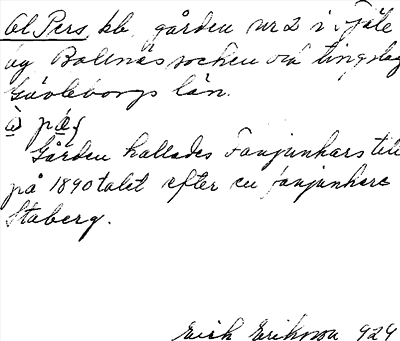 Ol Pers, kb, gården nr 2 i Fjäle
by Bollnäs socken o. s. v. tingslag
Gävleborgs län.
a) pæʃ
Gården kallades Fanjunkars till
på 1890 talet efter en fanjunkare
Staberg.
Erik Erikson 929